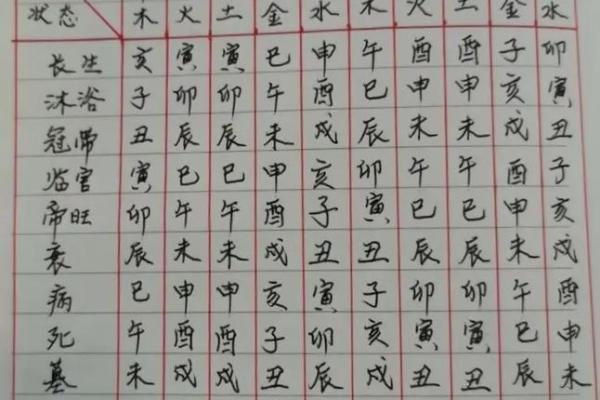 状态 木 火 土 金 水 木 火 土 金 水
长生 亥 寅 寅 巳 申 午 酉 酉 子 卯
沐浴 子 卯 卯 午 酉 巳 申 申 亥 寅
冠带 丑 辰 辰 未 戌 辰 未 未 戌 丑
临官 寅 巳 巳 申 亥 卯 午 午 酉 子
帝旺 卯 午 午 酉 子 寅 巳 巳 申 亥
衰 辰 未 未 戌 丑 丑 辰 辰 未 戌
病 巳 申 申 亥 寅 子 卯 卯 午 酉
死 午 酉 酉 子 卯 亥 寅 寅 巳 申
墓 未 戌 戌 丑 辰 戌 丑 丑 辰 未